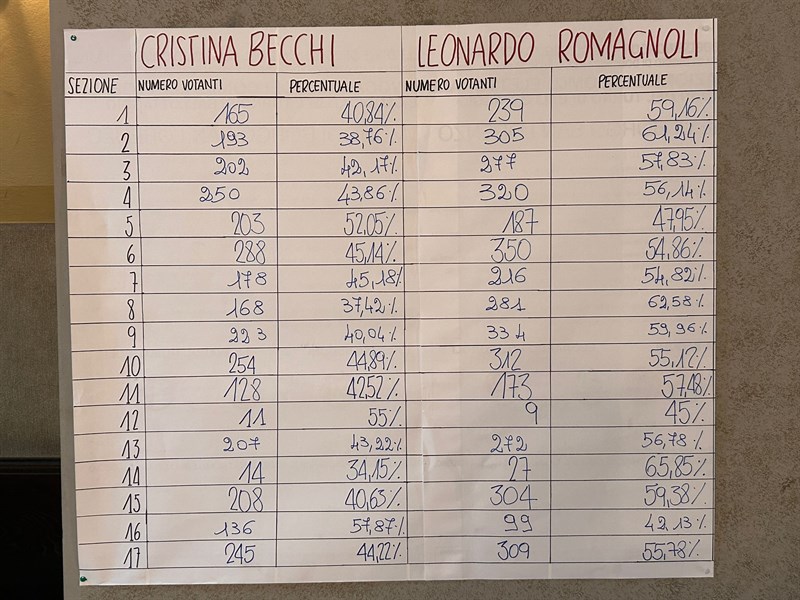 CRISTINA BECCHI LEONARDO ROMAGNOLI
SEZIONE NUMERO VOTANTI PERCENTUALE NUMERO VOTANTI PERCENTUALE
1 165 40,84% 239 59,16%
2 193 38,76% 305 61,24%
3 202 42,17% 277 57,83%
4 250 43,86% 320 56,14%
5 203 52,05% 187 47,95%
6 288 45,14% 350 54,86%
7 178 45,18% 216 54,82%
8 168 37,42% 281 62,58%
9 223 40,04% 334 59,96%
10 254 44,89% 312 55,12%
11 128 42,52% 173 57,48%
12 11 55% 9 45%
13 207 43,22% 272 56,78%
14 14 34,15% 27 65,85%
15 208 40,63% 304 59,38%
16 136 57,87% 99 42,13%
17 245 44,22% 309 55,78%